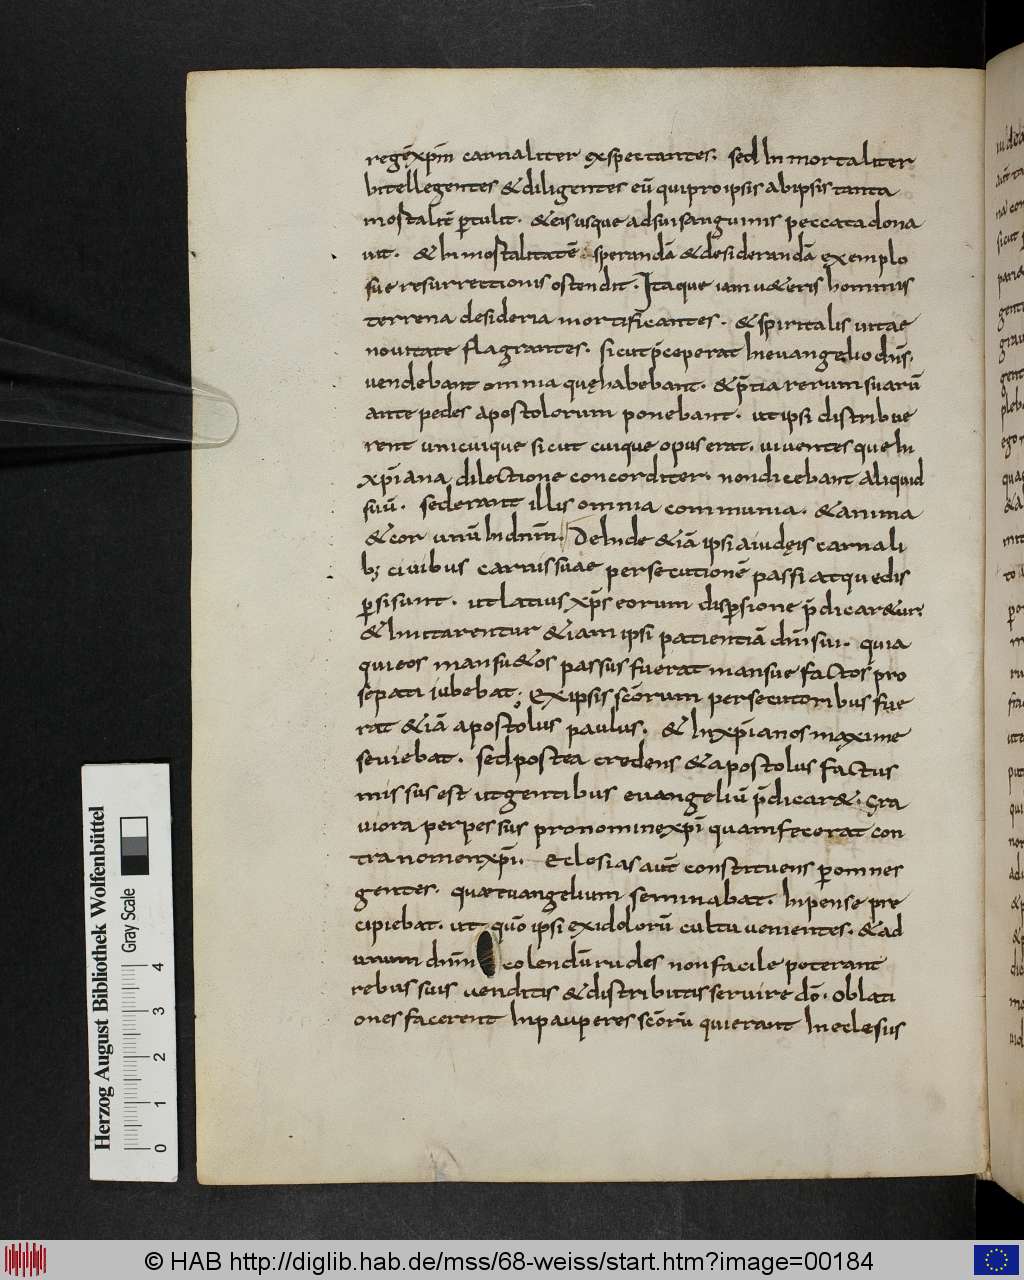 regē xp̄m carnaliter exspectantes. sed Inmortaliter
Intellegentes & diligentes eū qui pro ipsis ab ipsis tanta
mortalit̄ ꝑtulit. & eis usque ad sui sanguinis peccata dona
uit. & Inmortalitatē sperandā & desiderandā exemplo
sue resurrectionis ostendit. Itaque iam u&eris hominis
terrena desideria mortificantes. & spiritalis uitae
nouitate flagrantes. sicut p̄ceperat In euangelio dn̄s.
vendebant omnia quę habebant. & p̄tia rerum suarū
ante pedes apostolorum ponebant. ut ipsi distribue
rent unicuique sicut cuique opus erat. uiuentesque In
xp̄iana dilectione concorditer. non dicebant aliquid
suū. sed erant illis omnia communia. & anima
& cor unū In dn̄m. DeInde &iā ipsi a iudęis carnali
bꝫ ciuibus carnis suae persecutionē passi atque dis
ꝑsi sunt. ut latius xp̄s eorum disꝑsione p̄dicar&ur.
& Imitarentur &iam ipsi patientiā dn̄i sui. quia
qui eos mansu&os passus fuerat mansuefactos pro
se pati iubebat; Ex ipsis sc̄orum persecutoribus fue
rat &iā apostolus paulus. & In xp̄ianos maxime
seuiebat. sed postea credens & apostolus factus
missus est ut gentibus euangeliū p̄dicar&. gra
uiora perpessus pro nomine xp̄i quam fecerat con
tra nomen xp̄i. Eclesias aut̄ constituens ꝑ omnes
gentes. qua euangelium seminabat. Inpense pre
cipiebat. ut quō ipsi ex idolorū cultu uenientes. & ad
unum dn̄m colendū rudes non facile poterant
rebus suis uenditis & distributis seruire dō. oblati
ones facerent In pauperes sc̄orū qui erant In eclesiis
Herzog August Bibliothek Wolfenbüttel
Gray Scale
0 1 2 3 4
© HAB http://diglib.hab.de/mss/68-weiss/start.htm?image=00184